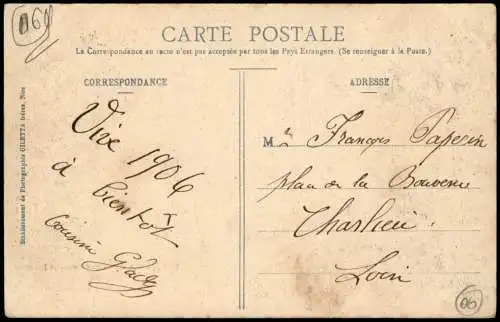 061
CARTE POSTALE
La Correspondance au recto n'est pas acceptée par tous les Pays Etrangers. (Se renseigner à la Poste.)
CORRESPONDANCE
ADRESSE
Etablissement de Photographie GILETTA frères, Nice
Vive 1906
à bientôt
Cousin
M François
place de la
Charlieu
Loire
06